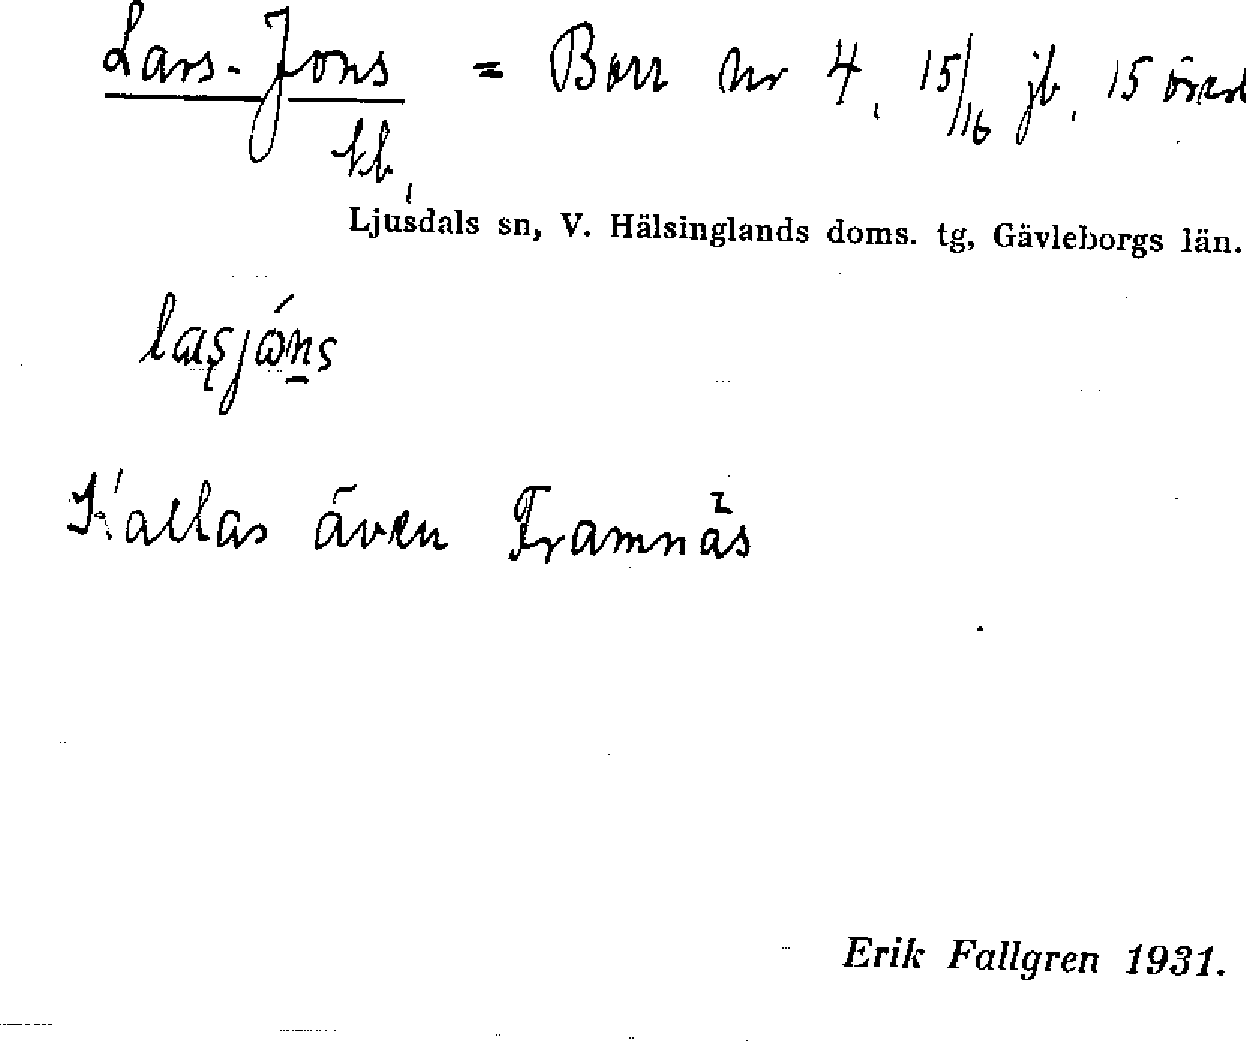 Lars-Jons = Borr Nr 4, 15/16 jb, 15 öresl
kb,
Ljusdals sn, V. Hälsinglands doms. tg, Gävleborgs län.
Kallas även Framnäs
Erik Fallgren 1931.